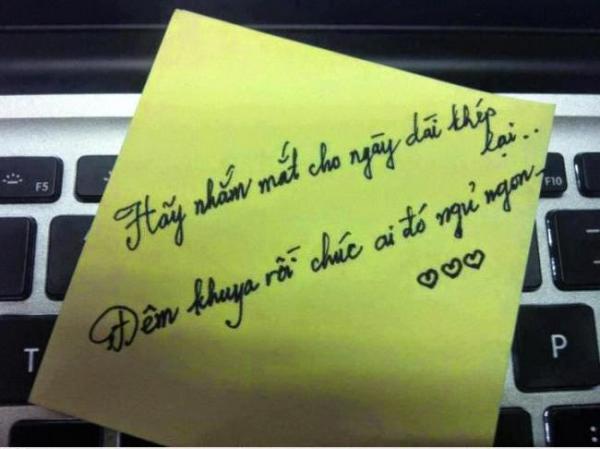 Hãy nhắm mắt cho ngày dài khép
lại..
Đêm khuya rồi chúc ai đó ngủ ngon
F5
F10
T
P